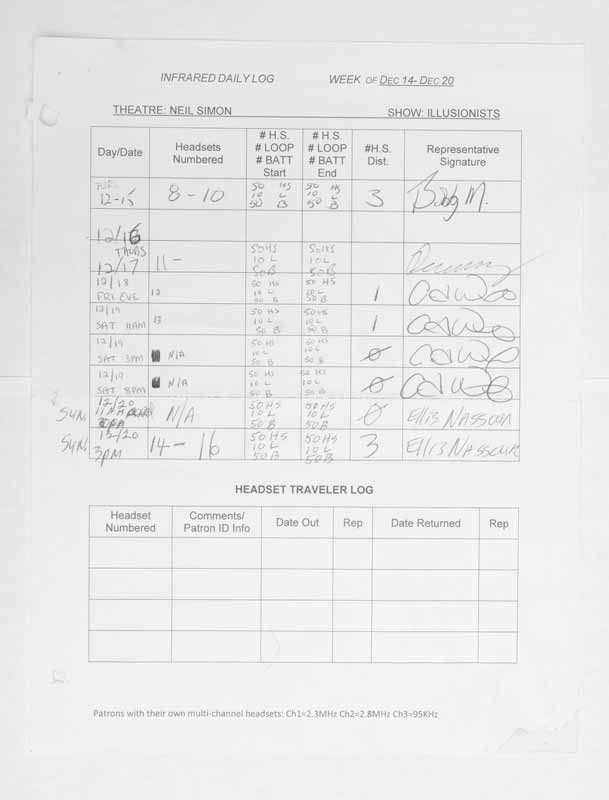 INFRARED DAILY LOG WEEK OF DEC 14- DEC 20
THEATRE: NEIL SIMON SHOW: ILLUSIONISTS
Day/Date Headsets Numbered # H.S. # LOOP # BATT Start # H.S. # LOOP # BATT End #H.S. Dist. Representative Signature
TUES 12-15 8-10 50 HS 10 L 50 B 50 HS 10 L 50 B 3 Bobby M.
12/16
THURS 12/17 11- 50HS 10L 50B 50HS 10L 50B
12/18 FRI EVE 12 50 HS 10 L 50 B 50 HS 10 L 50 B 1
12/19 SAT 11AM 13 50 HS 10 L 50 B 50HS 10 L 50 B 1
12/19 SAT 3PM N/A 50 HS 10 L 50 B 50 HS 10 L 50 B 0
12/19 SAT 8PM N/A 50 HS 10 L 50 B 50 HS 10 L 50 B 0
SUN. 12/20 11 N/A 50HS 10L 50B 50HS 10L 50B 0 ELLIS NASSOUR
SUN. 12/20 3PM 14-16 50HS 10 L 50B 50HS 10 L 50B 3 ELLIS NASSOUR
HEADSET TRAVELER LOG
Headset Numbered Comments/ Patron ID Info Date Out Rep Date Returned Rep
Patrons with their own multi-channel headsets: Ch1=2.3MHz Ch2=2.8MHz Ch3=95KHz